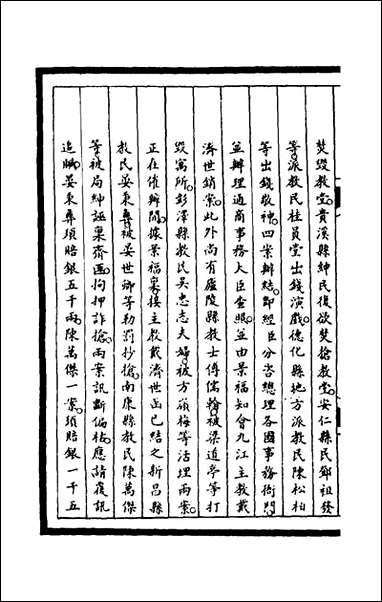 焚毀教堂。貴溪縣紳民復欲焚搶教堂。安仁縣民鄧祖發
等派教民桂員堂出錢演戲。德化縣地方派教民陳松柏
等出錢敬神。四案辦結。即經臣分咨總理各國事務衙門。
並辦理通商事務大臣查照。並由景福知會九江主教戴
濟世銷案。此外尚有廬陵縣教士傅儒翰。被梁道亭等打
毀寓所。彭澤縣教民吳忠志夫婦。被方嶺梅等活埋兩案。
正在催辦間。據景福稟接主教戴濟世函。已結之新昌縣
教民晏秉彝。被晏世卿等勒罰抄搶。南康縣教民陳萬傑
等被局紳誣稟齊匪。拘押詐搶。兩案訊斷偏枯。應請覆訊
追贓。晏秉彝項賠銀五千兩。陳萬傑一案。須賠銀一千五